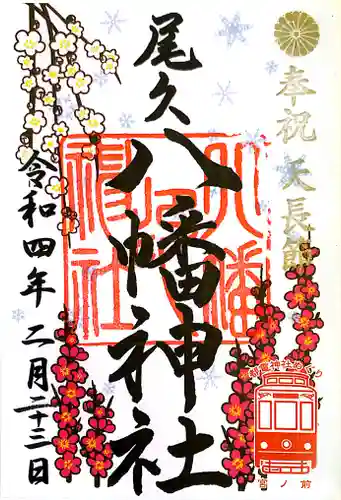 奉祝 天長節
尾久八幡神社
令和四年二月二十三日
宮ノ前